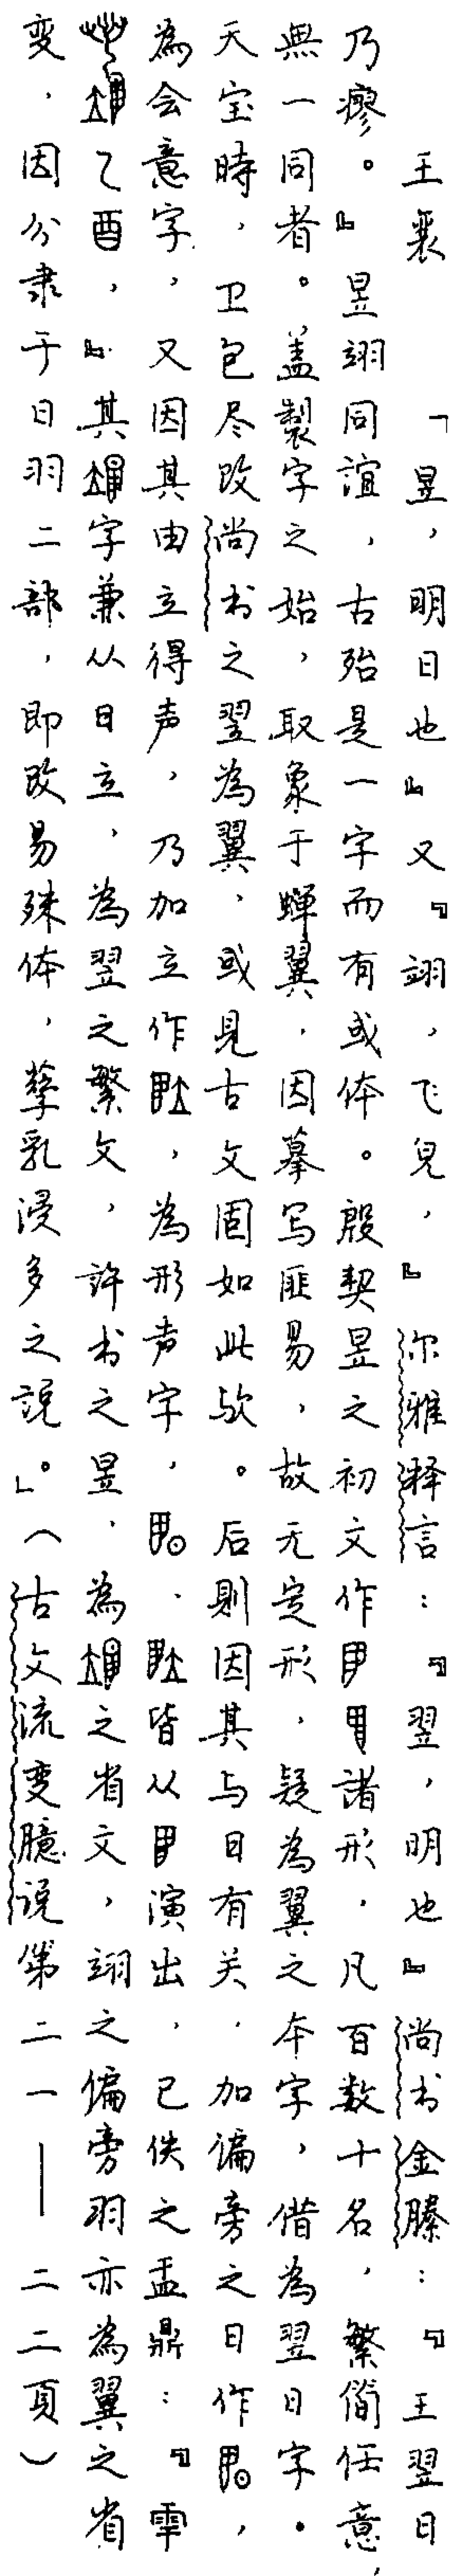 王襄　「昱，明日也』又『翊，飞皃，』尔雅释言：『翌，明也』尚书金縢：『王翌日
乃瘳。』昱翊同谊，古殆是一字而有或体。殷契昱之初文作诸形，凡百数十名，繁简任意，
無一同者。盖製字之始，取象于蝉翼，因摹写匪易，故无定形，疑为翼之本字，借为翌日字。
天宝時，卫包尽改尚书之翌為翼，或見古文固如此欤。后則因其与日有关，加偏旁之日作，
為会意字，又因其由立得声，乃加立作，為形声字，、皆从演出，已佚之盂鼎：『雩
乙酉，』其字兼从日立，為翌之繁文，許书之昱，為之省文，翊之偏旁羽亦為翼之省
变，因分隶于日羽二部，即改易殊体，孳乳浸多之說。」（古文流变臆说第二一——二二頁）